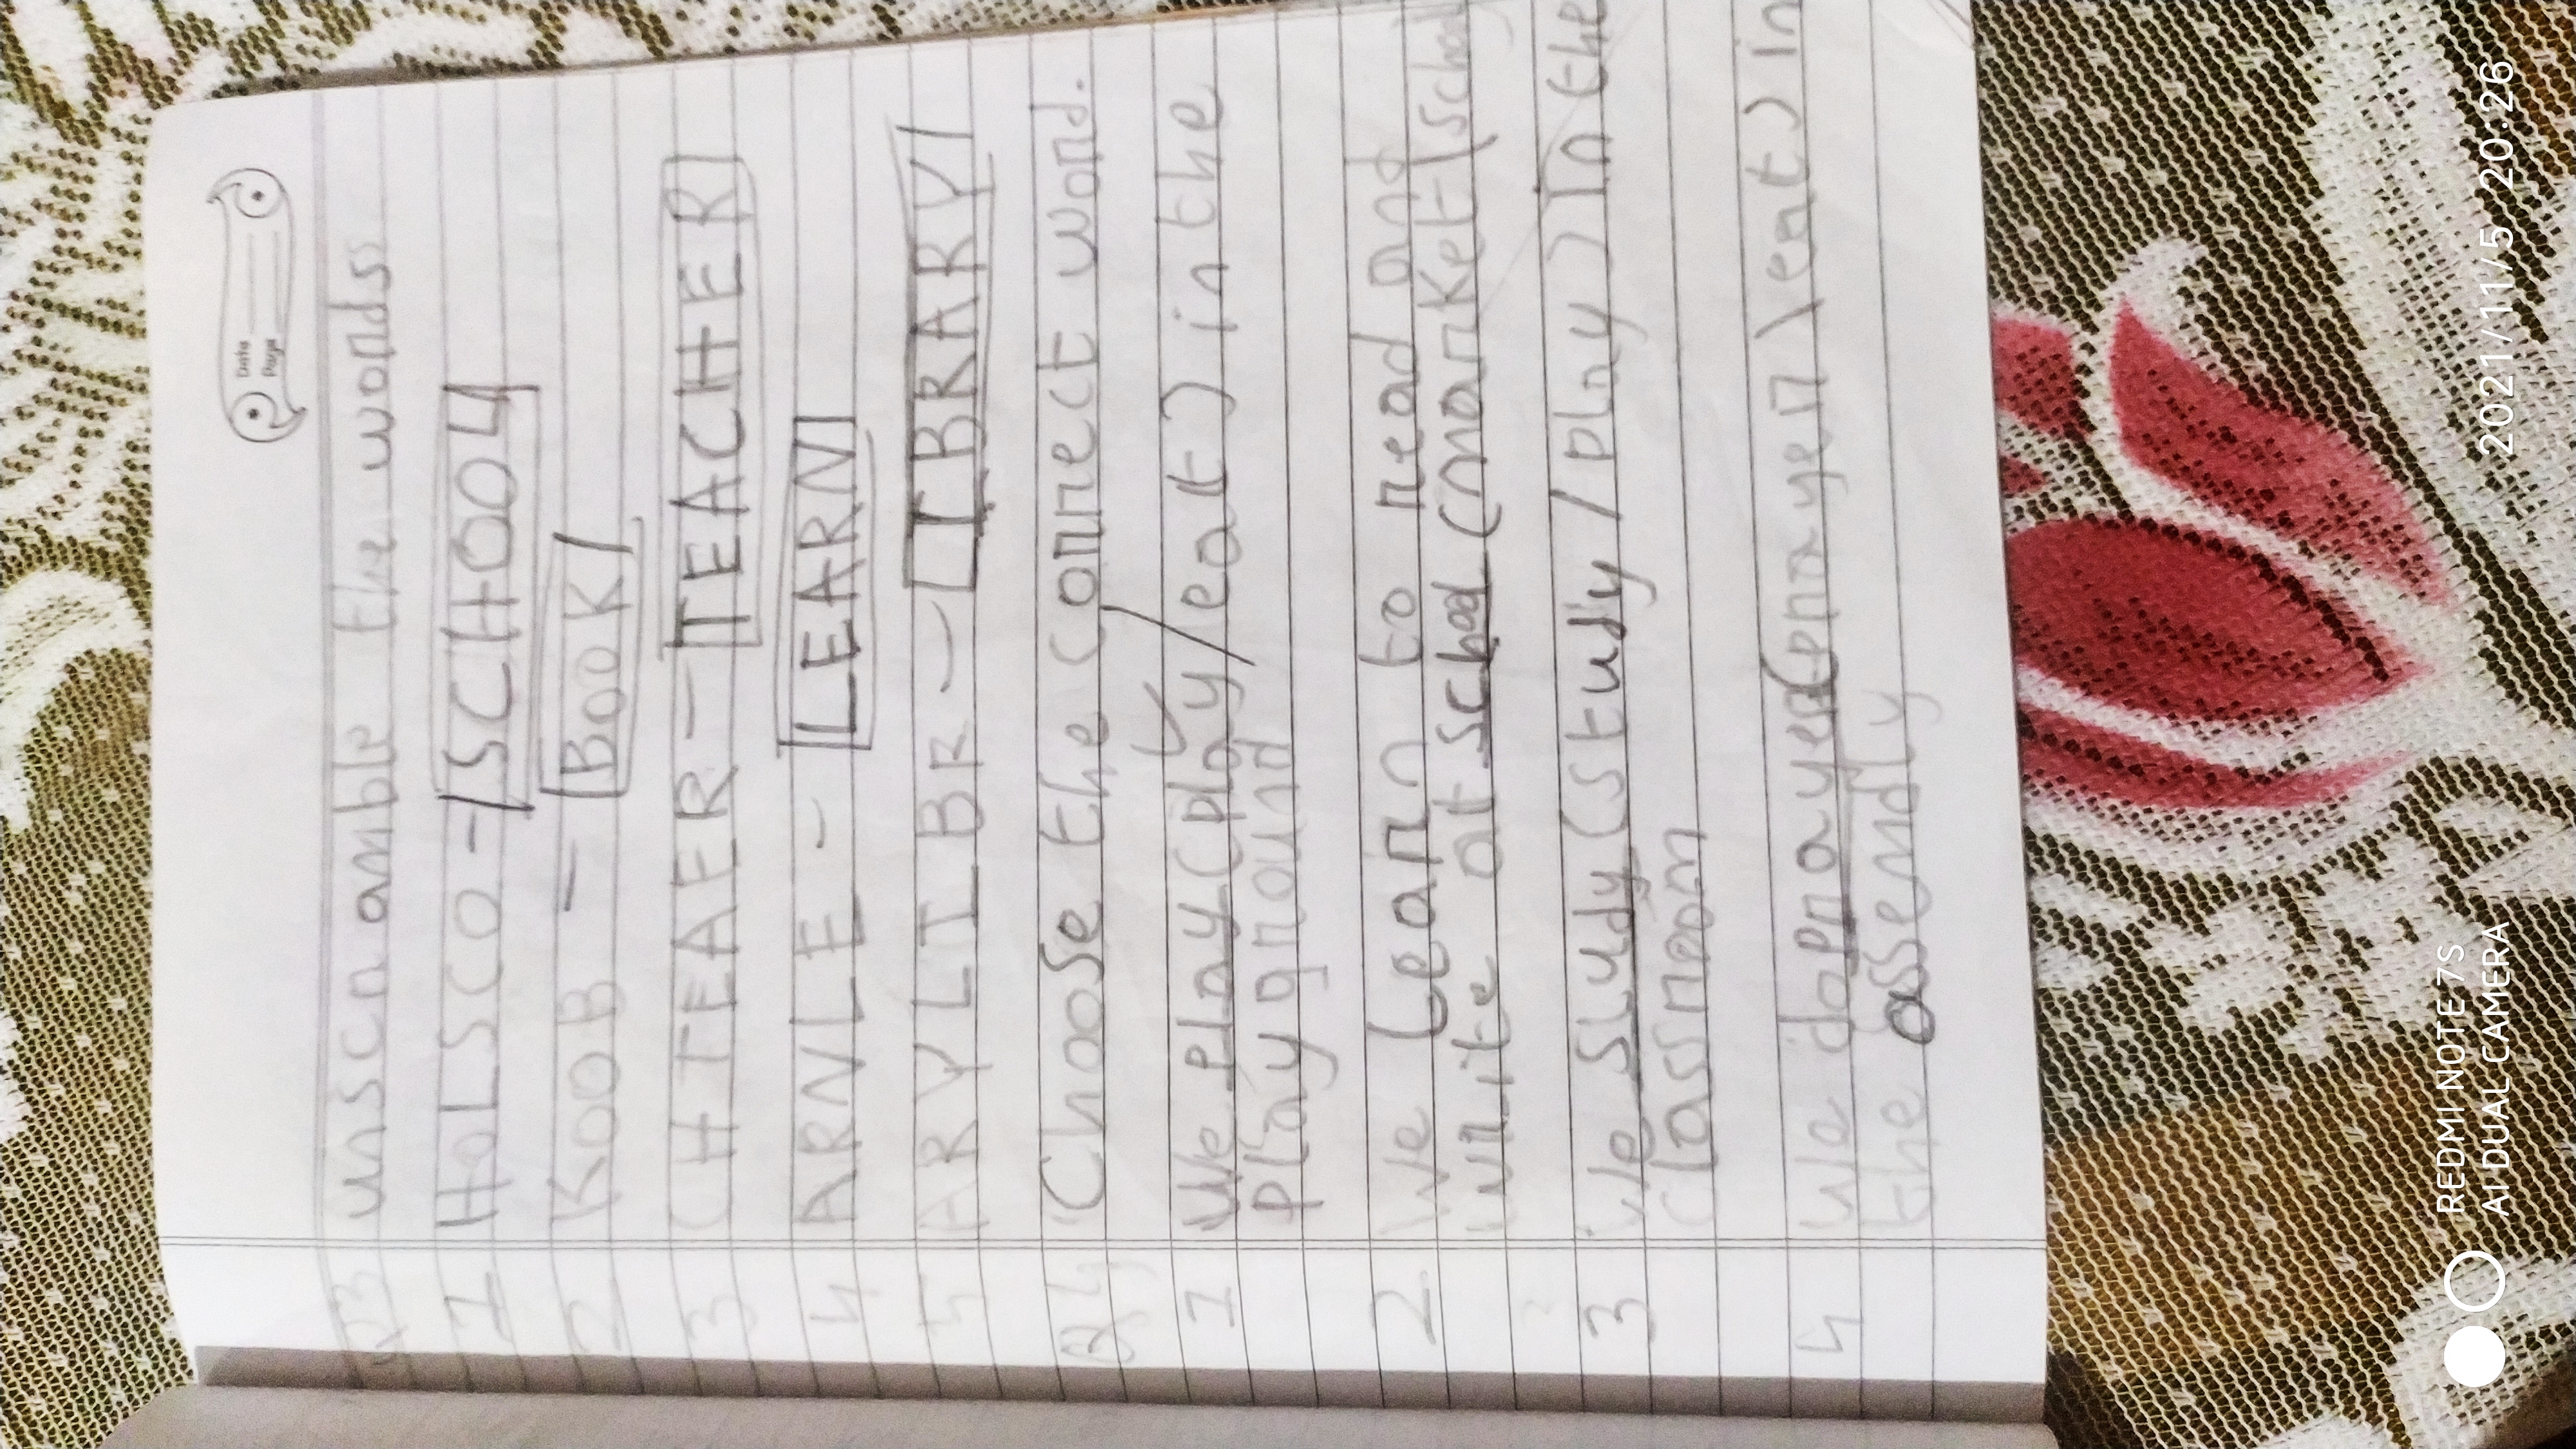 Date
Page
Q3 unscramble the words
1 HOLSCO - SCHOOL
2 KOOB - BOOK
3 CHTEAER - TEACHER
4 ARNLE - LEARN
5 ARYLIBR - LIBRARY
Q4 Choose the correct word.
1 We play (play/eat) in the
playground
2 We Learn to read and
write at school (market/school
3 We study (study/play) in the
classroom
4 We do prayer (prayer/eat) in
the assembly
REDMI NOTE 7S
AI DUAL CAMERA
2021/11/5 20:26